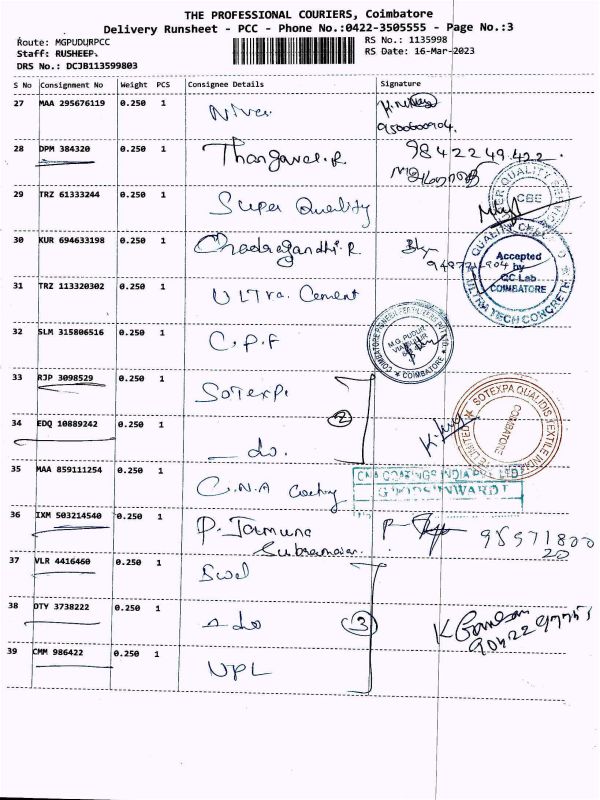 THE PROFESSIONAL COURIERS, Coimbatore
Delivery Runsheet - PCC - Phone No.:0422-3505555 - Page No.:3
Route: MGPUDURPCC
RS No.: 1135998
Staff: RUSHEEP.
RS Date: 16-Mar-2023
DRS No.: DCJB113599803
S No Consignment No Weight PCS Consignee Details Signature
27 MAA 295676119 0.250 1
28 DPM 384320 0.250 1 Thangavel.R 9842249422
29 TRZ 61333244 0.250 1 Super Quality
CBE
30 KUR 694633198 0.250 1
QUALITY
Accepted by QC Lab COIMBATORE
ULTRA TECH CONCRETE
31 TRZ 113320302 0.250 1 ULTra. Cement
32 SLM 315806516 0.250 1 C.P.F
M.G. PUDUR
COIMBATORE
33 RJP 3098529 0.250 1 Sotexpa
2
SOTEXPA QUALIDIS TEXTILE
COIMBATORE
34 EDQ 10889242 0.250 1 - do.
35 MAA 859111254 0.250 1 C.N.A Coating
CNA COATINGS INDIA PVT LTD
36 IXM 503214540 0.250 1 P. Jamuna
37 VLR 4416460 0.250 1
38 DTY 3738222 0.250 1 - do
3
K Ganesan
39 CMM 986422 0.250 1 UPL